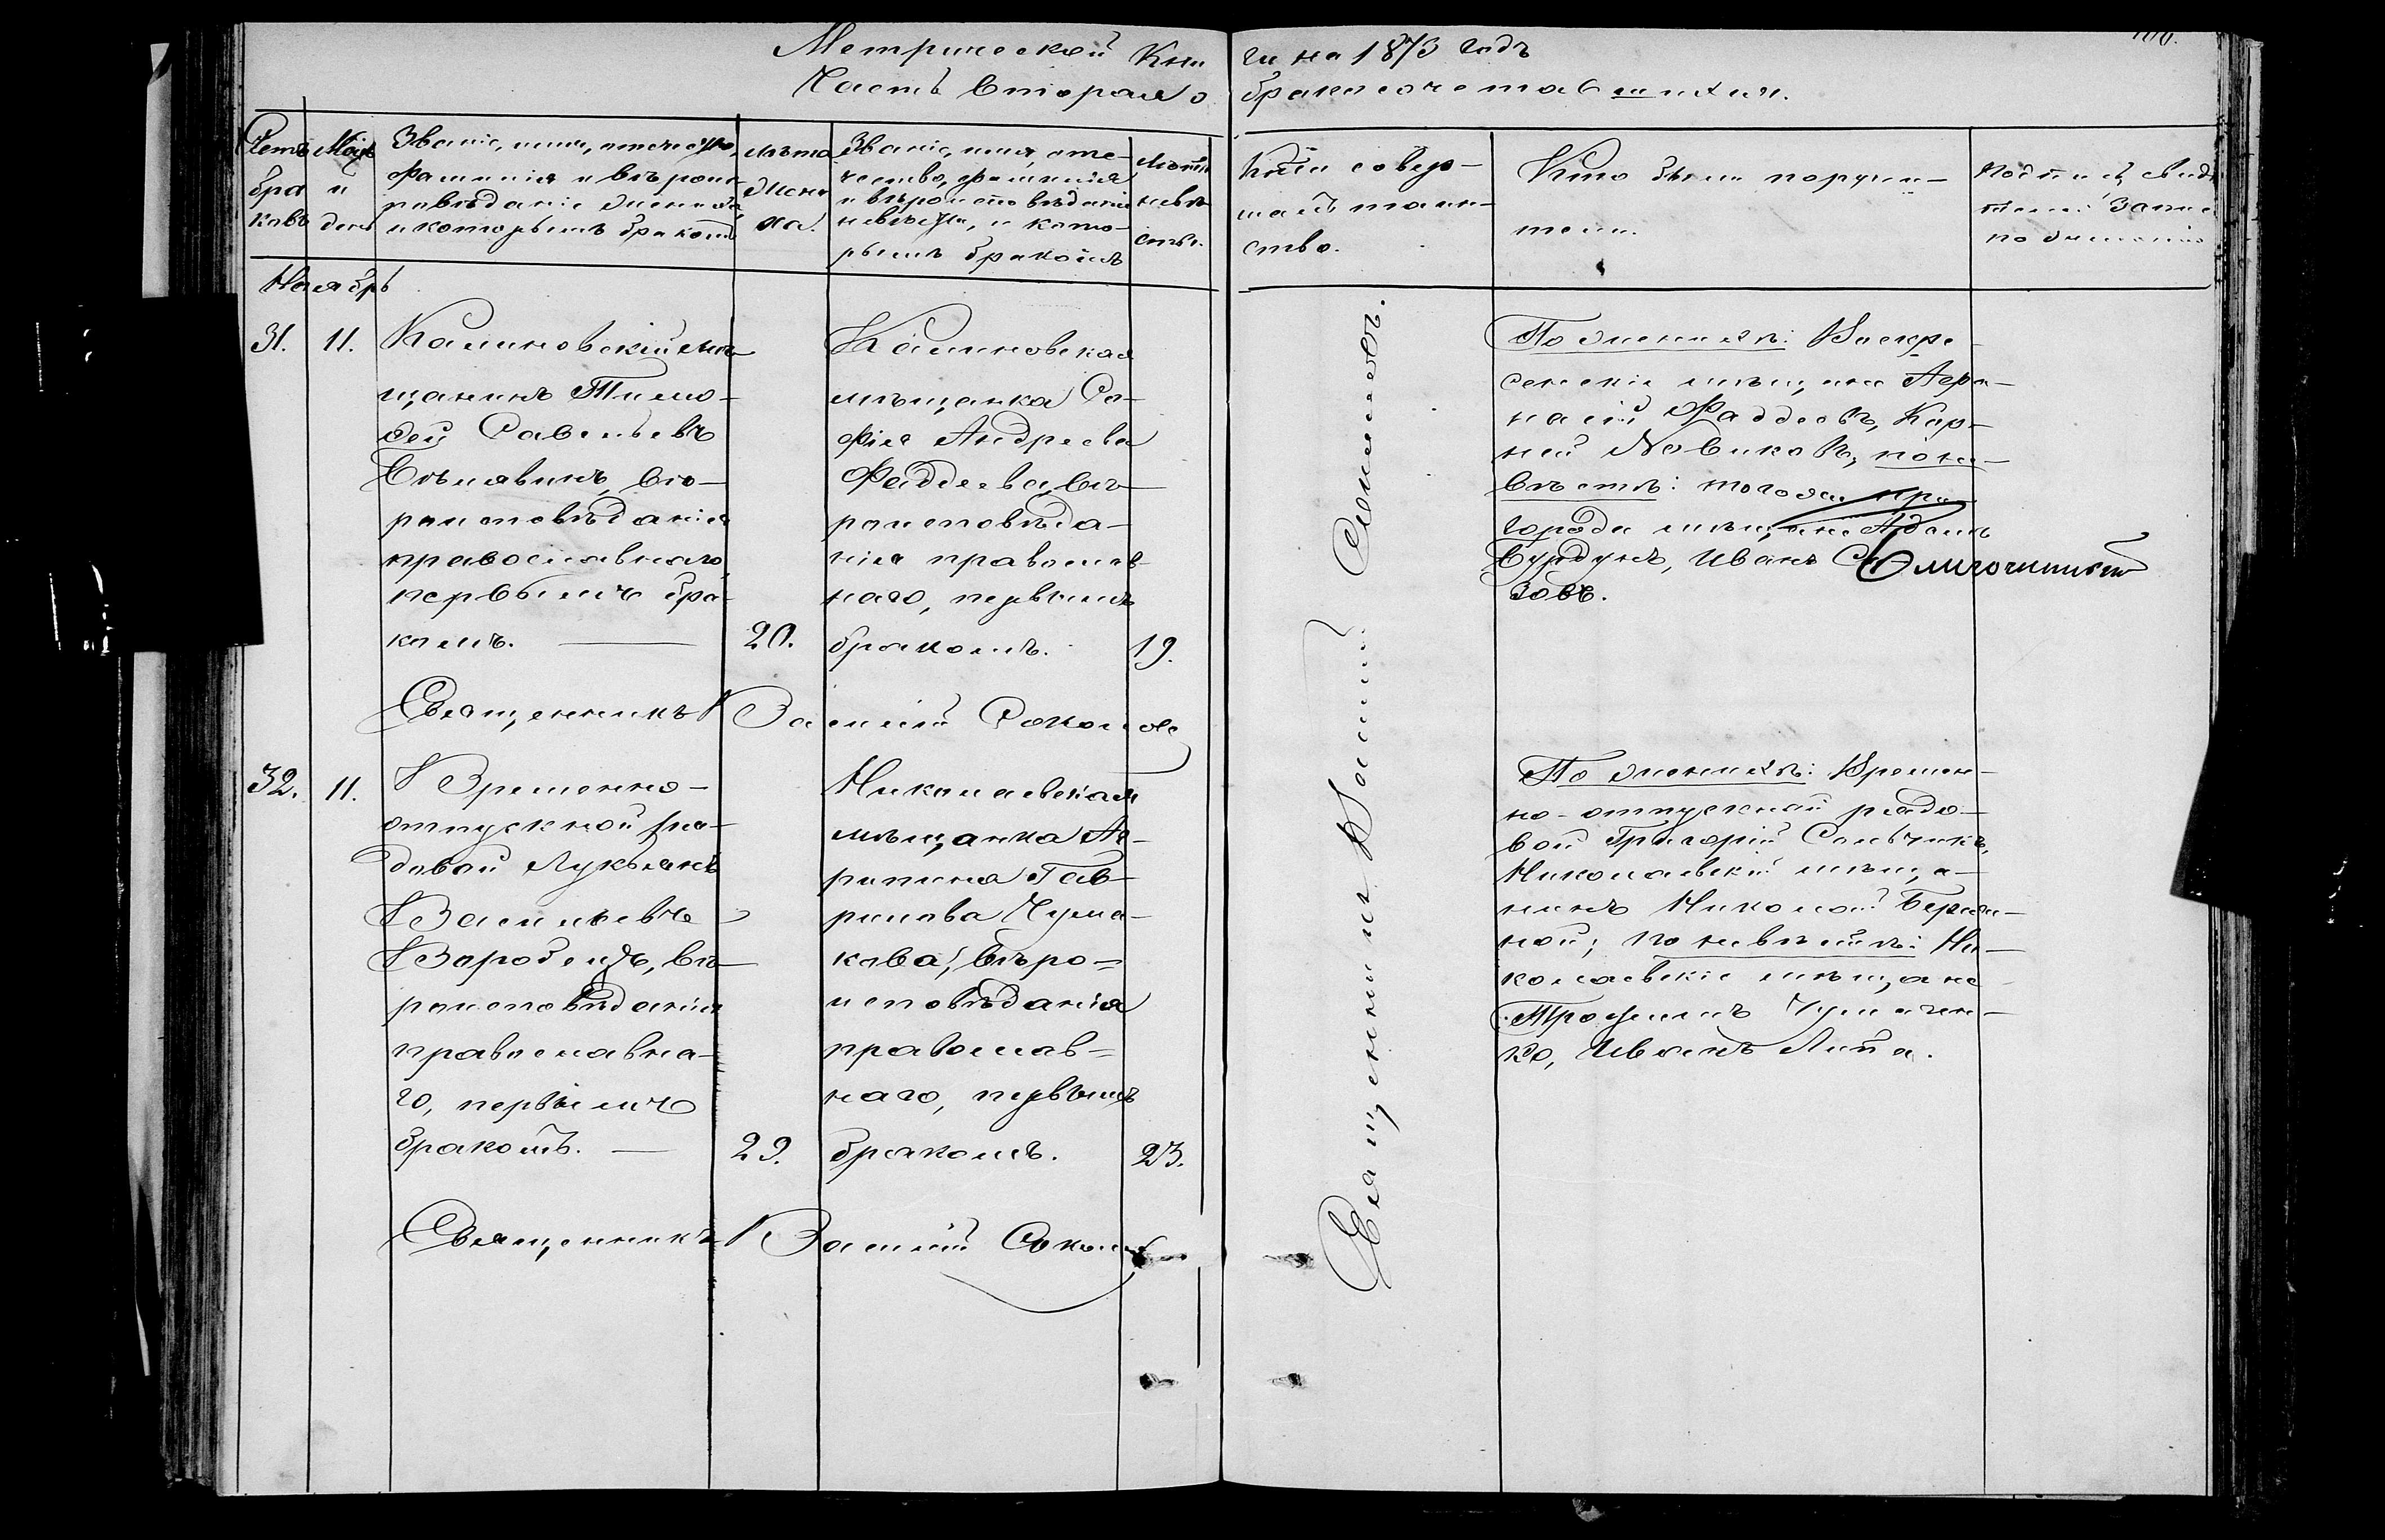 Метрической Кни
ги на 1873 годъ
Часть вторая о
бракосочетавшихся.
Счетъ браковъ
Мѣсяцъ и день
Званіе, имя, отчество,
фамилія и вѣроис-
повѣданіе жениха,
и которымъ бракомъ
лѣта
жени
ха.
Званіе, имя, оте-
чество, фамилія
и вѣроисповѣданіе
невѣсты, и кото-
рымъ бракомъ
Лѣта
невѣ
сты.
Кто совер-
шалъ таин-
ство.
Кто были поручи-
тели.
Подпись свидѣ
телей записи
по желанію
Ноябрь
31.
11.
Калиновскій мѣ-
щанинъ Тимо-
фей Савельевъ
вѣ-
роисповѣданія
православнаго,
первымъ бра-
комъ.
20.
Калиновская
мѣщанка Со-
фія Андреева
Фаддеева, вѣ-
роисповѣда-
нія православ-
наго, первымъ
бракомъ.
19.
По женихѣ: Воскре-
сенскіе мѣщане
Фаддеевъ, Кор-
ней Новиковъ, по не-
вѣстѣ: того же
города мѣщане Адамъ
Бурдунъ, Иванъ
зовъ.
Священникъ Василій Соколовъ
32.
11.
Временно-
отпускной ря-
довой Лукьянъ
Васильевъ
вѣ-
роисповѣданія
православна-
го, первымъ
бракомъ.
29.
Николаевская
мѣщанка Аг-
рипина Гав-
рилова Чума-
кова, вѣро-
исповѣданія
православ-
наго, первымъ
бракомъ.
23.
Священникъ Василій Соколовъ.
По женихѣ: Времен-
но-отпускной рядо-
вой Григорій
Николаевскій мѣща-
нинъ Николай Бережн-
ной; по невѣстѣ: Ни-
колаевскіе мѣщане
Трофимъ Чумачен-
ко, Иванъ Липа.
Священникъ Василій Соколовъ